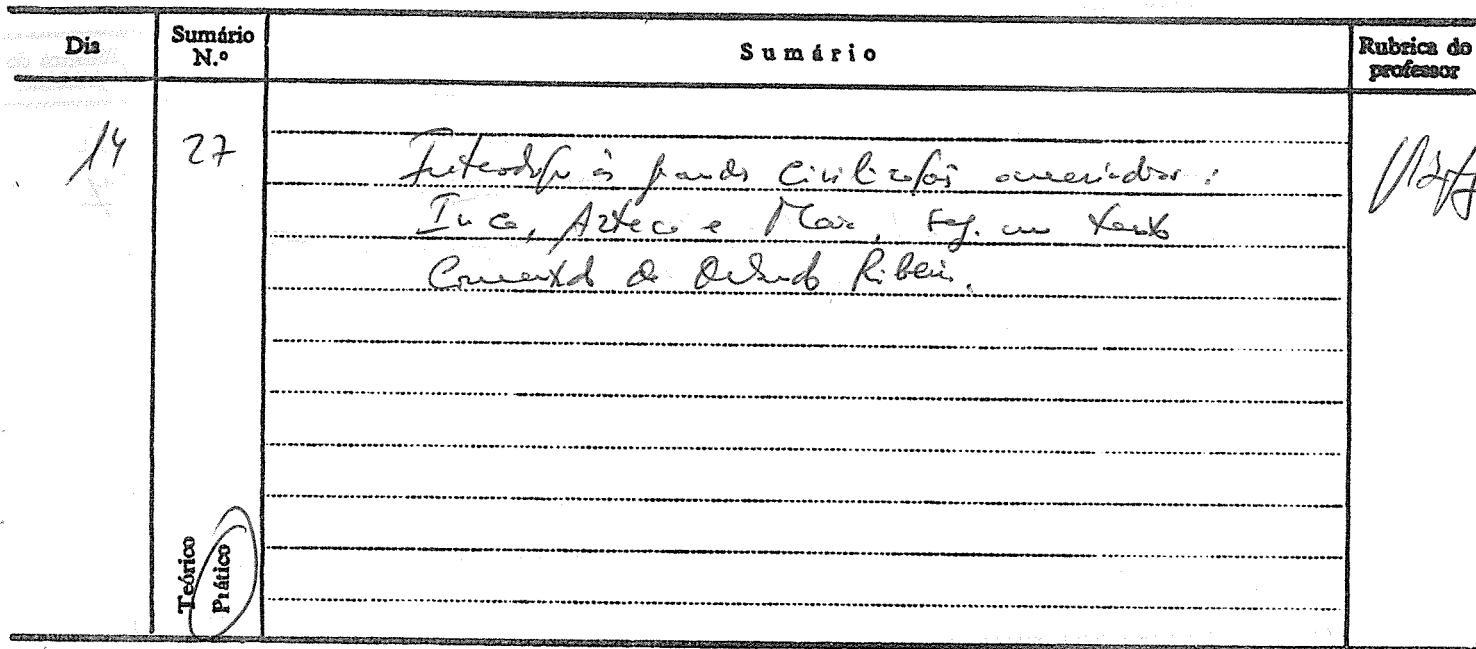 Dia Sumário N.º Sumário Rubrica do professor
14 27 Introdução às grandes civilizações ameríndias:
Inca, Azteca e Maia, seg. um texto
de Orlando Ribeiro.
Teórico
Prático